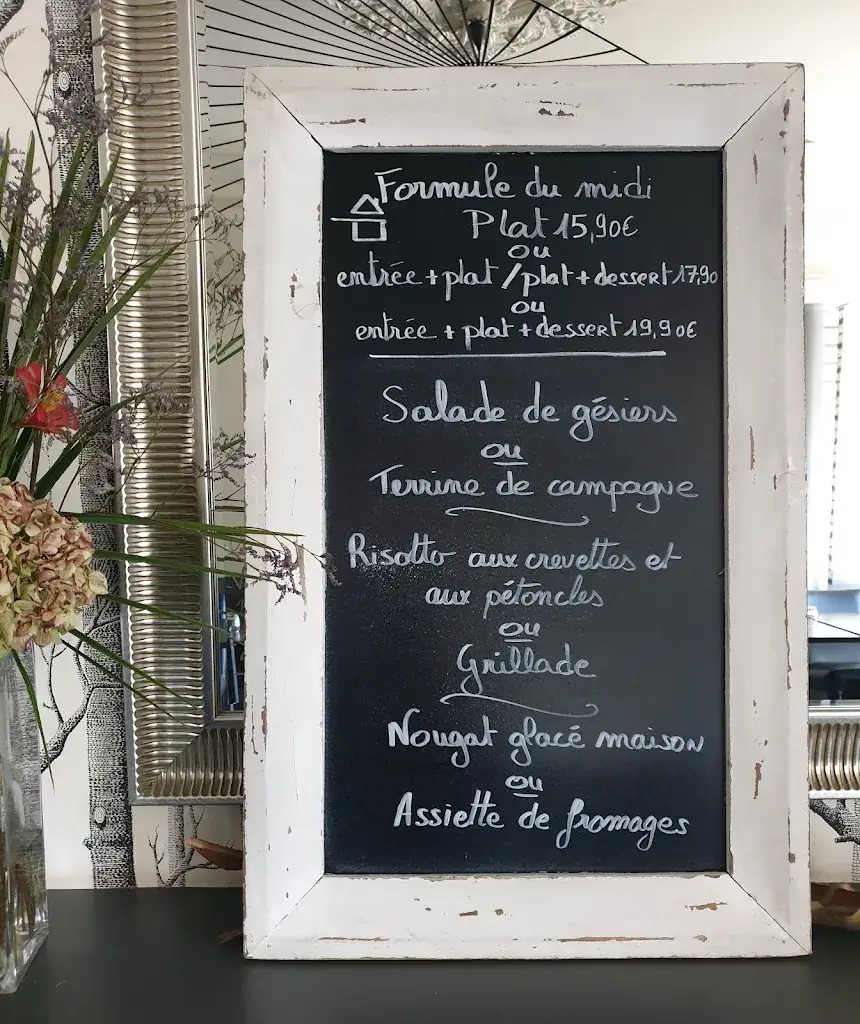 Formule du midi
Plat 15,90€
ou
entrée + plat / plat + dessert 17,90
ou
entrée + plat + dessert 19,90€
Salade de gésiers
ou
Terrine de campagne
Risotto aux crevettes et
aux pétoncles
ou
Grillade
Nougat glacé maison
ou
Assiette de fromages